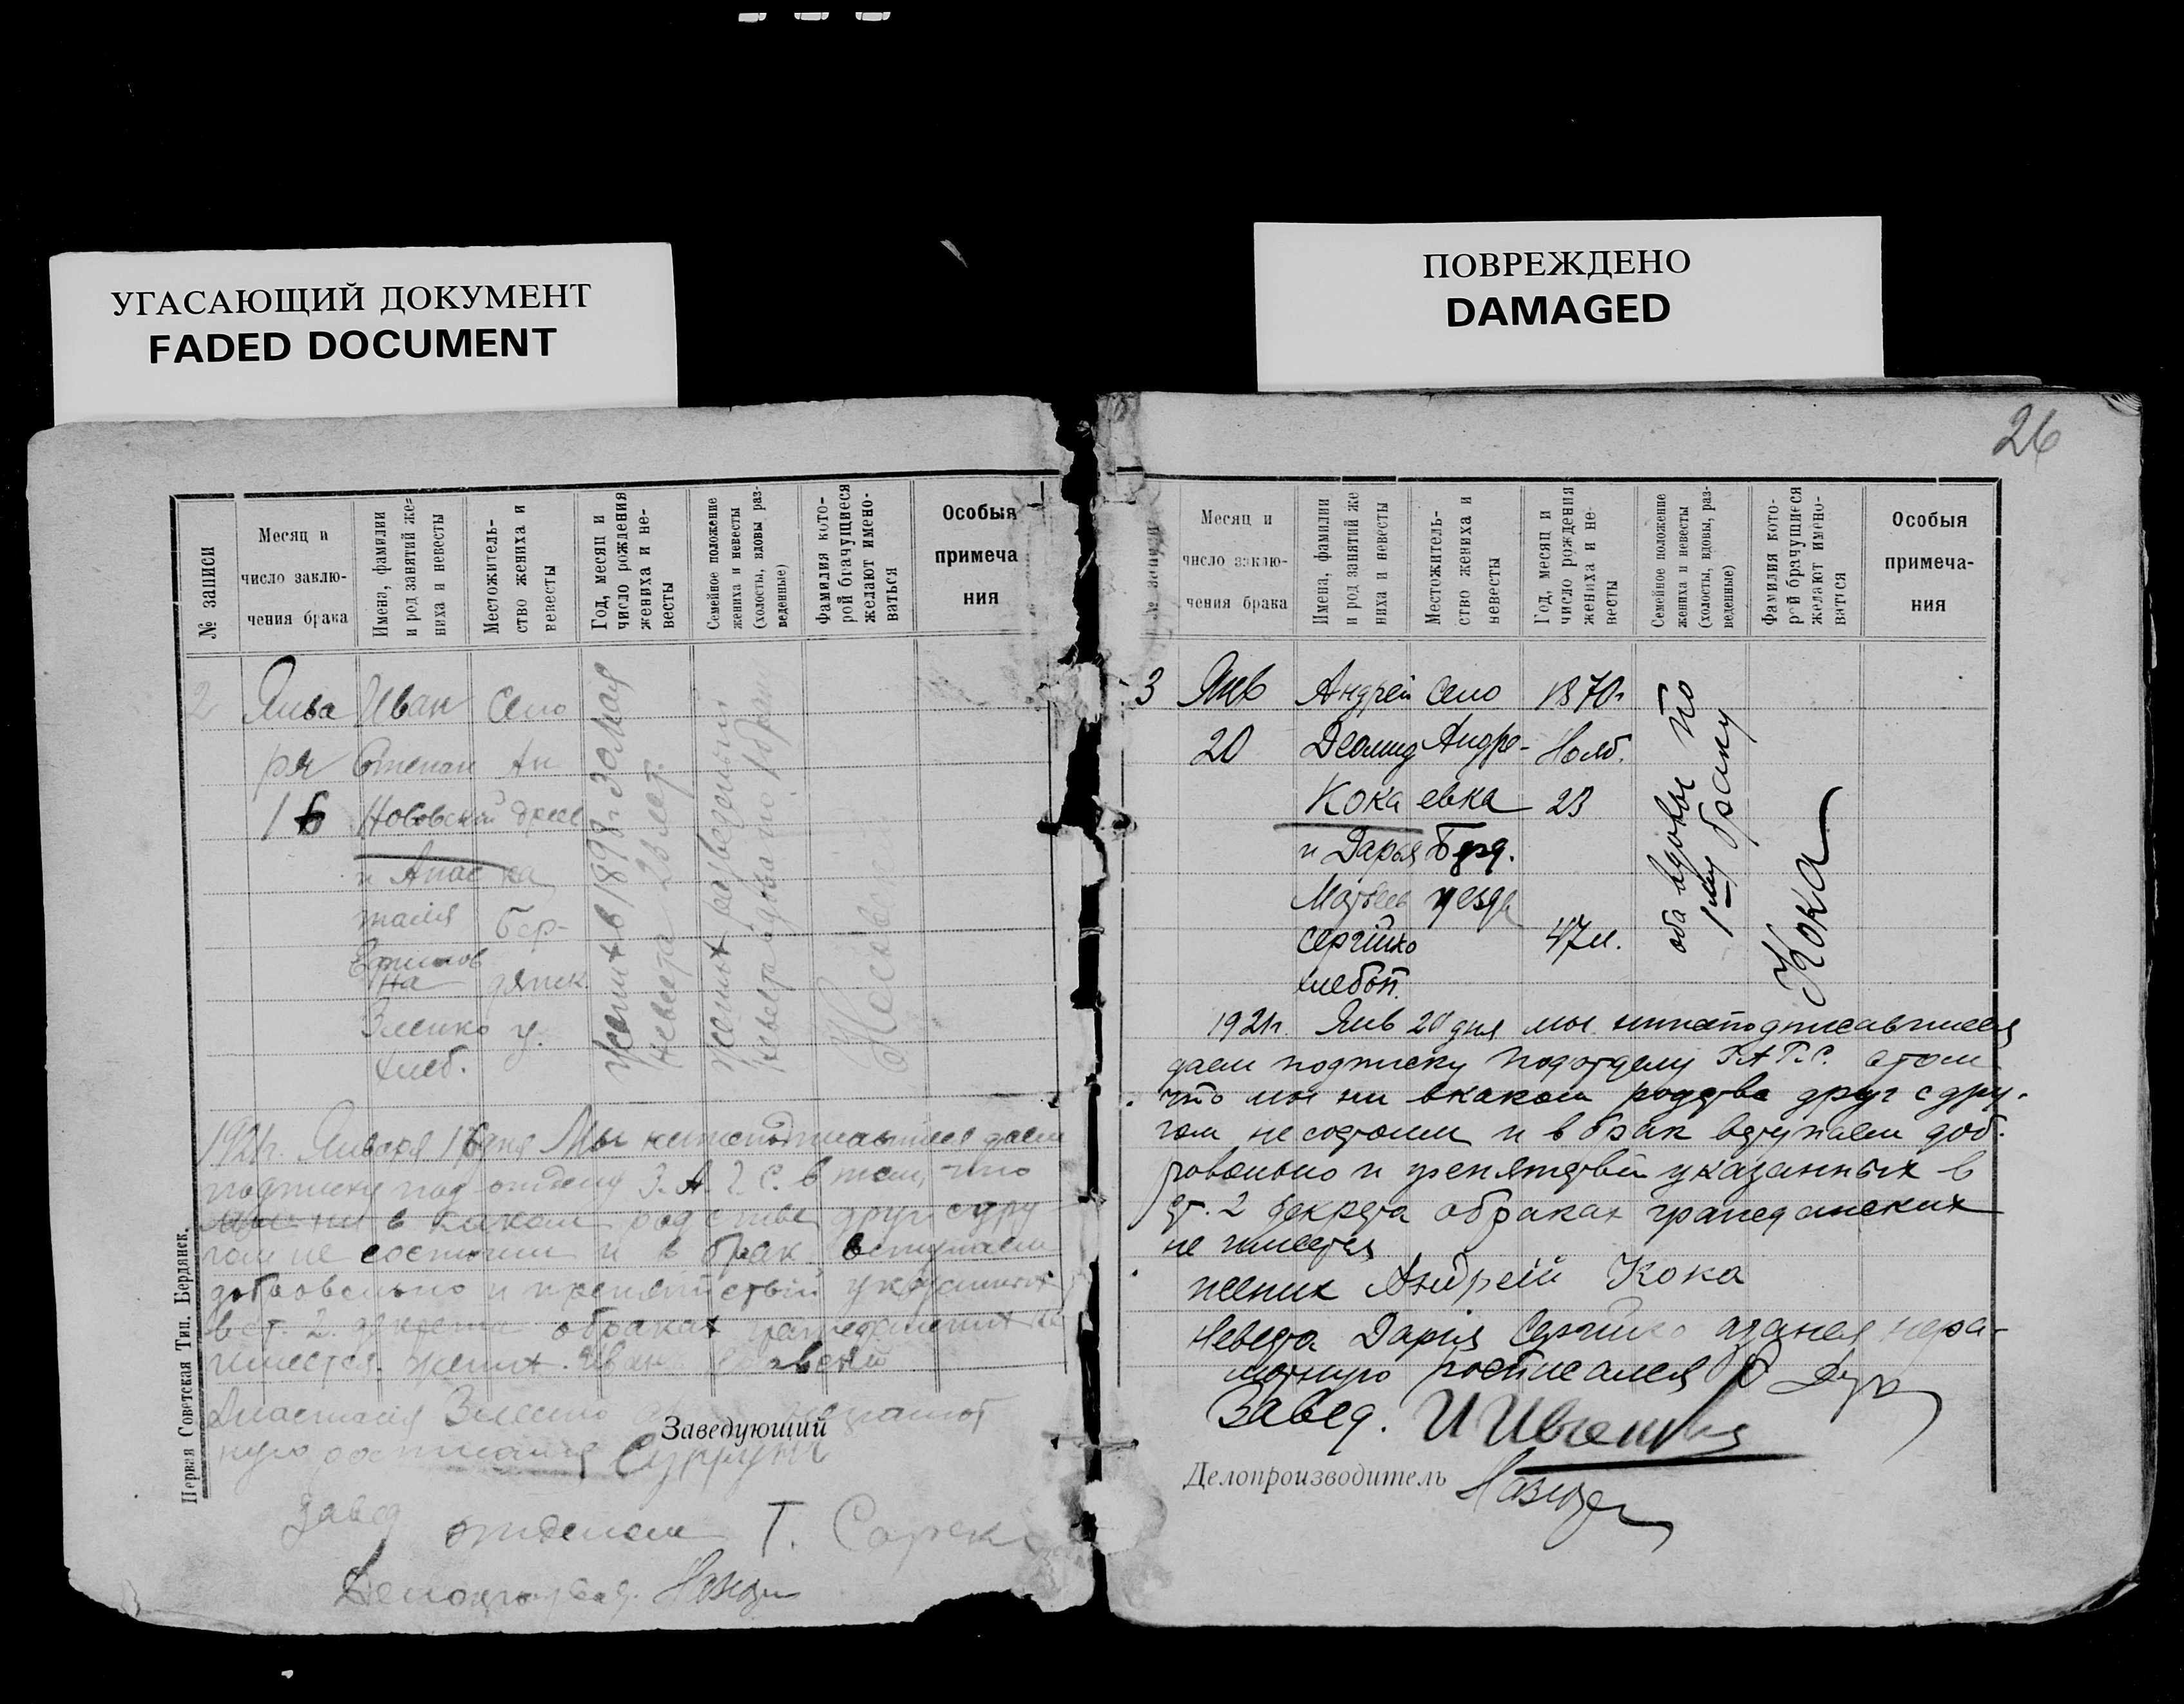 УГАСАЮЩИЙ ДОКУМЕНТ
FADED DOCUMENT
ПОВРЕЖДЕНО
DAMAGED
26
№ записи
Месяц и число заклю-чения брака
Имена, фамилии и род занятий же-ниха и невесты
Местожитель-ство жениха и невесты
Год, месяц и число рождения жениха и не-весты
Семейное положение жениха и невесты (холосты, вдовы раз-веденные)
Фамилия кото-рой брачущиеся желают имено-ваться
Особыя примеча ния
2
Янва Иван Село
ря Степан Ан
16 Нововский дреев
и Анас ка
тасия Бер-
на дянск.
Зленко у.
хлеб.
Жених в 1898 г. 30 мая
невеста 23 лет.
Жених разведеный
невеста вдова по 1 браку
1921 г. Января 16 дня Мы нижеподписавшиеся даем
подписку под отделу З.А.Г.С. в том, что
мы ни в каком родстве друг с дру
гом не состоим и в брак вступаем
добровольно и препятствий указанных
в ст. 2. декрета о браках гражданских не
имеется. жених. Иван
Анастасия Зленко неграмот
ную росписался
Заведующий
Завед
отделом Т.
Делопроизвод.
Первая Советская Тип. Бердянск.
№ записи
Месяц и число заклю-чения брака
Имена, фамилии и род занятий же ниха и невесты
Местожитель-ство жениха и невесты
Год, месяц и число рождения жениха и не-весты
Семейное положение жениха и невесты (холосты, вдовы, раз-веденные)
Фамилия кото-рой брачущиеся желают имено-ваться
Особыя примеча-ния
3 Янв Андрей Село 1870 г
20 Деомид Андре- Нояб.
Кока евка 23
и Дарья Берд.
Матвеев уезда
Сергійко 47 л.
хлебоп.
оба вдовые по
1 му браку
Кока
1921 г. Янв 20 дня мы нижеподписавшиеся
даем подписку подотделу З.А.Г.С. отом
что мы ни вкаком родстве друг с дру-
гом не состоим и в брак вступаем доб-
ровольно и препятствий указанных в
ст. 2 декрета обраках гражданских
не имеется
жених Андрей Кока
Невеста Дария Сергійко азанея негра-
мотную росписался
Завед.
Делопроизводитель